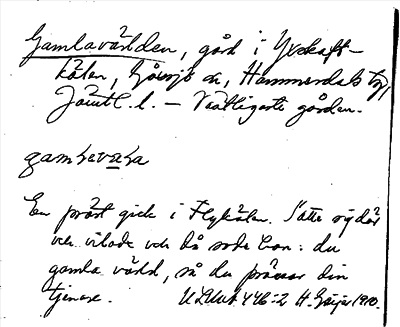 Gamlavärlden, gård i Yxskaft-
kälen, Gåxsjö sn, Hammerdals tg,
Jämtl. l. — Västligaste gården.
gamlevaɽa
En präst gick i Flykälen. Satte sig där
och vilade och då sade han: du
gamla värld, så du prässar din
tjenare. ULMA 446:2 H. Geijer 1910.